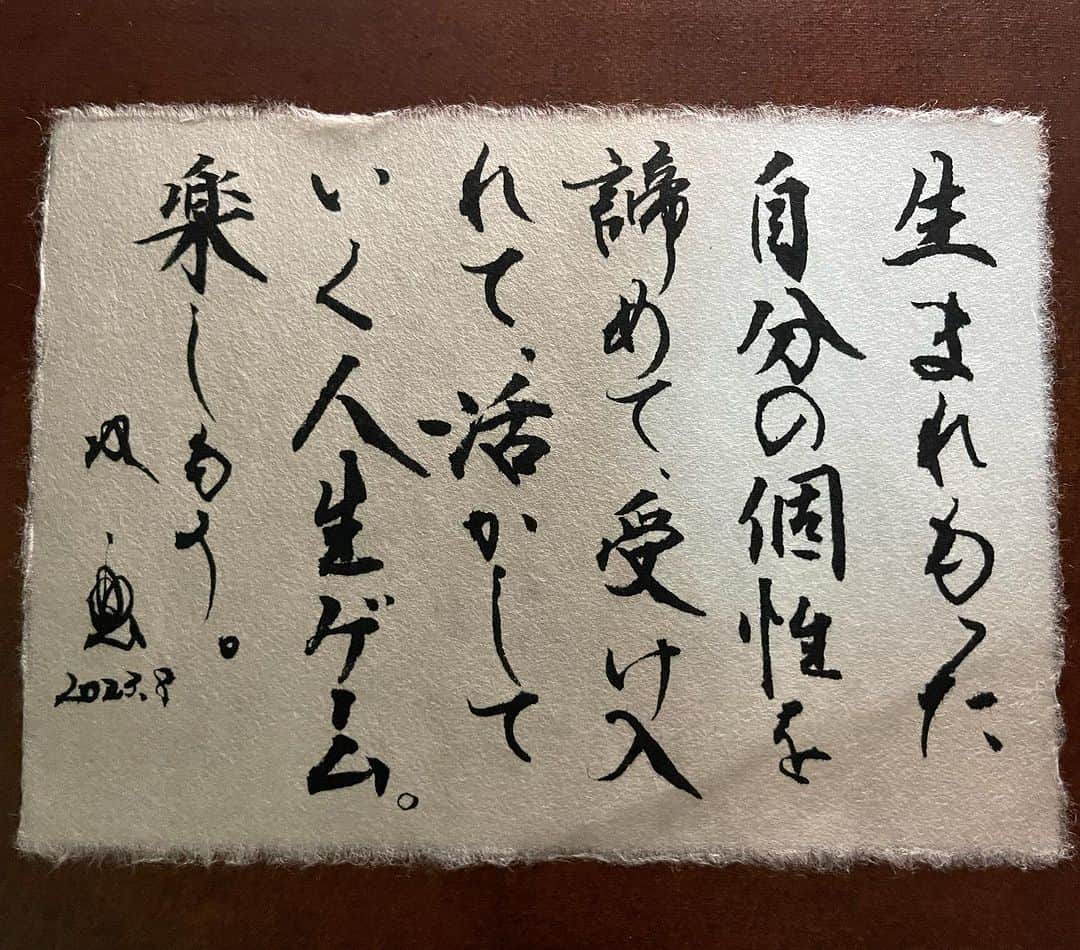 生まれもった
自分の個性を
諦めて、受け入
れて、活かして
いく人生ゲーム。
楽しもう。
2023.8